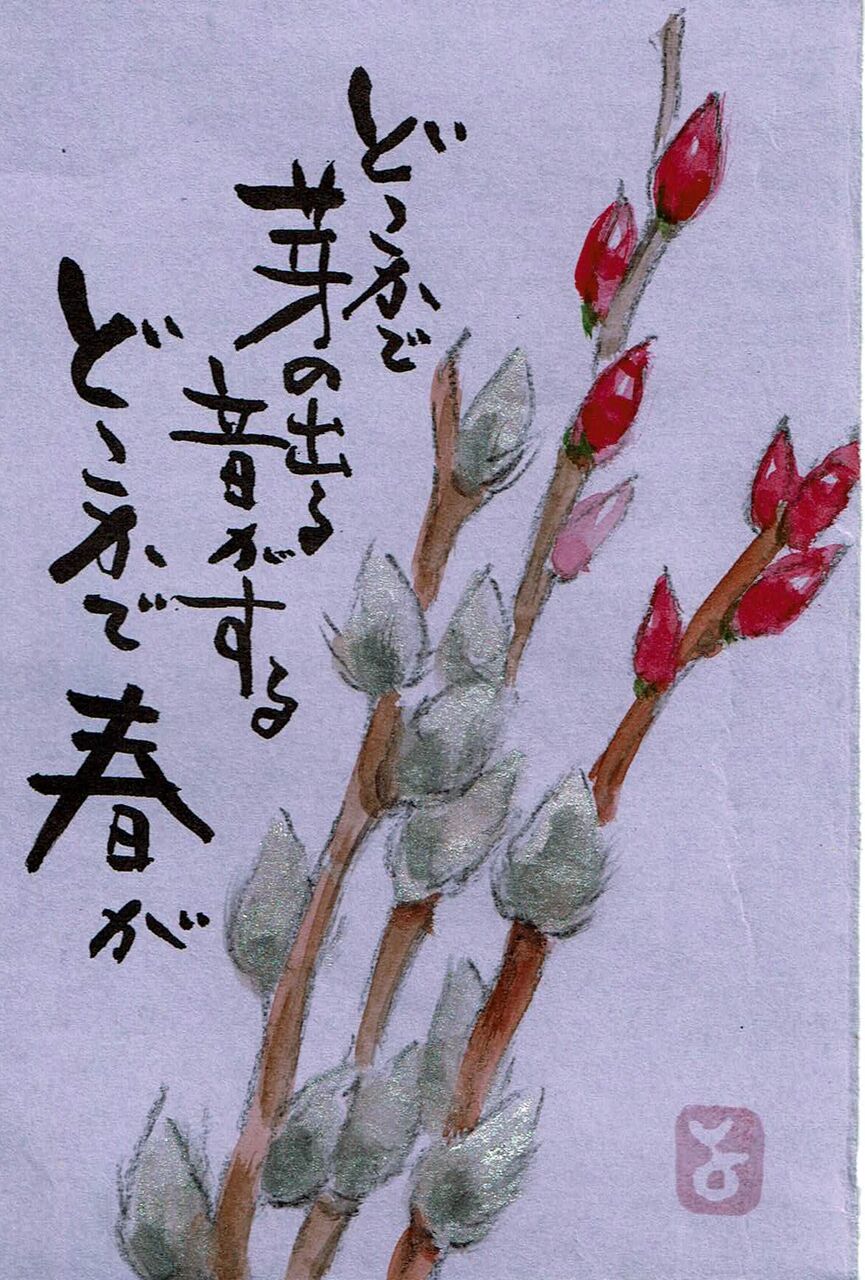 どこかで
芽の出る
音がする
どこかで春が